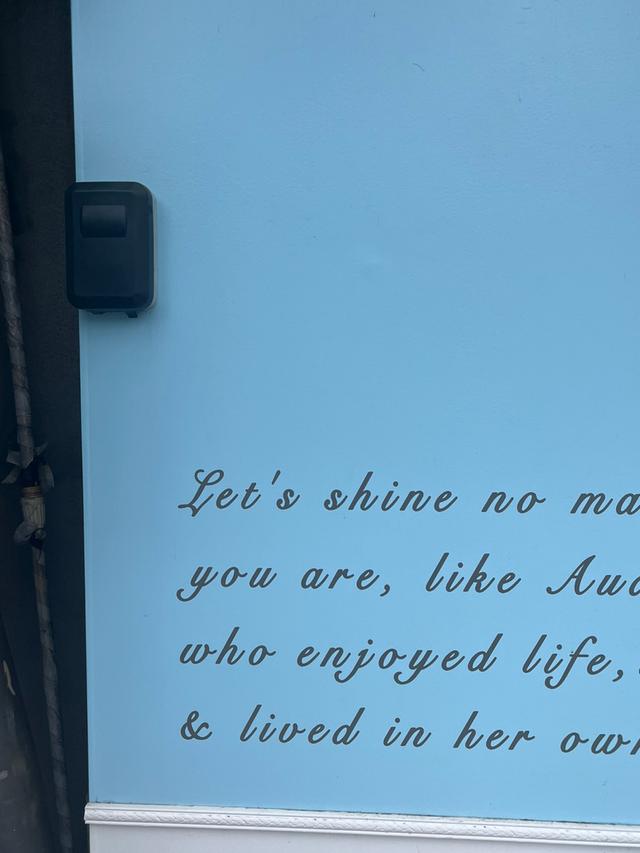 Let's shine no ma
you are, like Aud
who enjoyed life,
& lived in her own